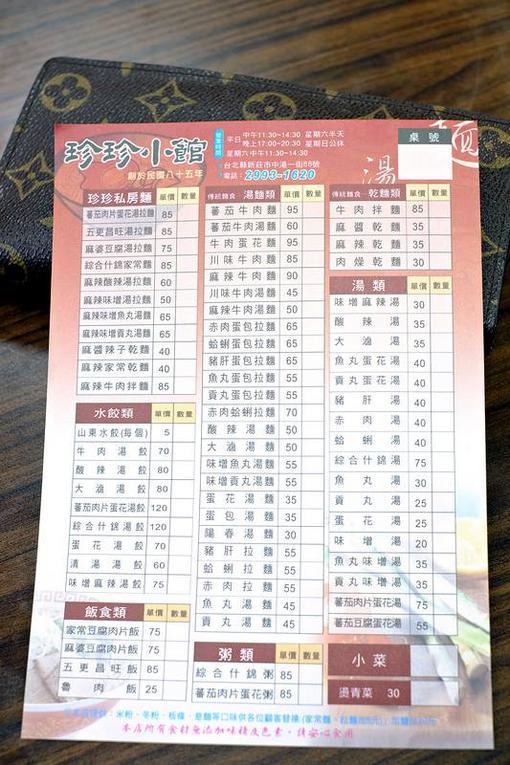 珍珍小館
創於民國八十五年
營業時間
平日 中午11:30~14:30 星期六半天
晚上17:00~20:30 星期日公休
星期六中午11:30~14:30
台北縣新莊市中港一街85號
電話:2993-1620
湯
麵
桌號
珍珍私房麵 單價 數量
蕃茄肉片蛋花湯拉麵 85
五更昌旺湯拉麵 85
麻婆豆腐湯拉麵 75
綜合什錦家常麵 85
麻辣酸辣湯拉麵 60
麻辣味增湯拉麵 50
麻辣味增魚丸湯麵 65
麻辣味增貢丸湯麵 65
麻醬辣子乾麵 40
麻辣家常乾麵 40
麻辣牛肉拌麵 85
水餃類 單價 數量
山東水餃(每個) 5
牛肉湯餃 70
酸辣湯餃 80
大滷湯餃 80
蕃茄肉片蛋花湯餃 120
綜合什錦湯餃 120
蛋花湯餃 70
清湯湯餃 60
味增麻辣湯餃 75
飯食類 單價 數量
家常豆腐肉片飯 75
麻婆豆腐肉片飯 75
五更昌旺飯 85
魯肉飯 25
傳統麵食-湯麵類 單價 數量
蕃茄牛肉麵 95
蕃茄牛肉湯麵 60
牛肉蛋花麵 95
川味牛肉麵 85
麻辣牛肉麵 90
川味牛肉湯麵 45
麻辣牛肉湯麵 50
赤肉蛋包拉麵 65
蛤蜊蛋包拉麵 65
豬肝蛋包拉麵 65
魚丸蛋包拉麵 55
貢丸蛋包拉麵 55
赤肉蛤蜊拉麵 70
酸辣湯麵 50
大滷湯麵 50
味增魚丸湯麵 55
味增貢丸湯麵 55
蛋花湯麵 35
蛋包湯麵 35
陽春湯麵 30
豬肝拉麵 55
蛤蜊拉麵 55
赤肉拉麵 55
魚丸湯麵 45
貢丸湯麵 45
粥類 單價 數量
綜合什錦粥 85
蕃茄肉片蛋花粥 85
傳統麵食-乾麵類 單價 數量
牛肉拌麵 85
麻醬乾麵 35
麻辣乾麵 35
肉燥乾麵 30
湯類 單價 數量
味增麻辣湯 30
酸辣湯 35
大滷湯 35
魚丸蛋花湯 40
貢丸蛋花湯 40
豬肝湯 40
赤肉湯 40
蛤蜊湯 40
綜合什錦湯 75
魚丸湯 30
貢丸湯 25
蛋花湯 25
味增湯 20
魚丸味增湯 35
貢丸味增湯 35
蕃茄肉片蛋花湯 75
蕃茄豆腐蛋花湯 55
小菜
燙青菜 30
米粉、冬粉、板條、意麵等口味供各位顧客替換
本店所有食材無添加味精及色素，請安心食用